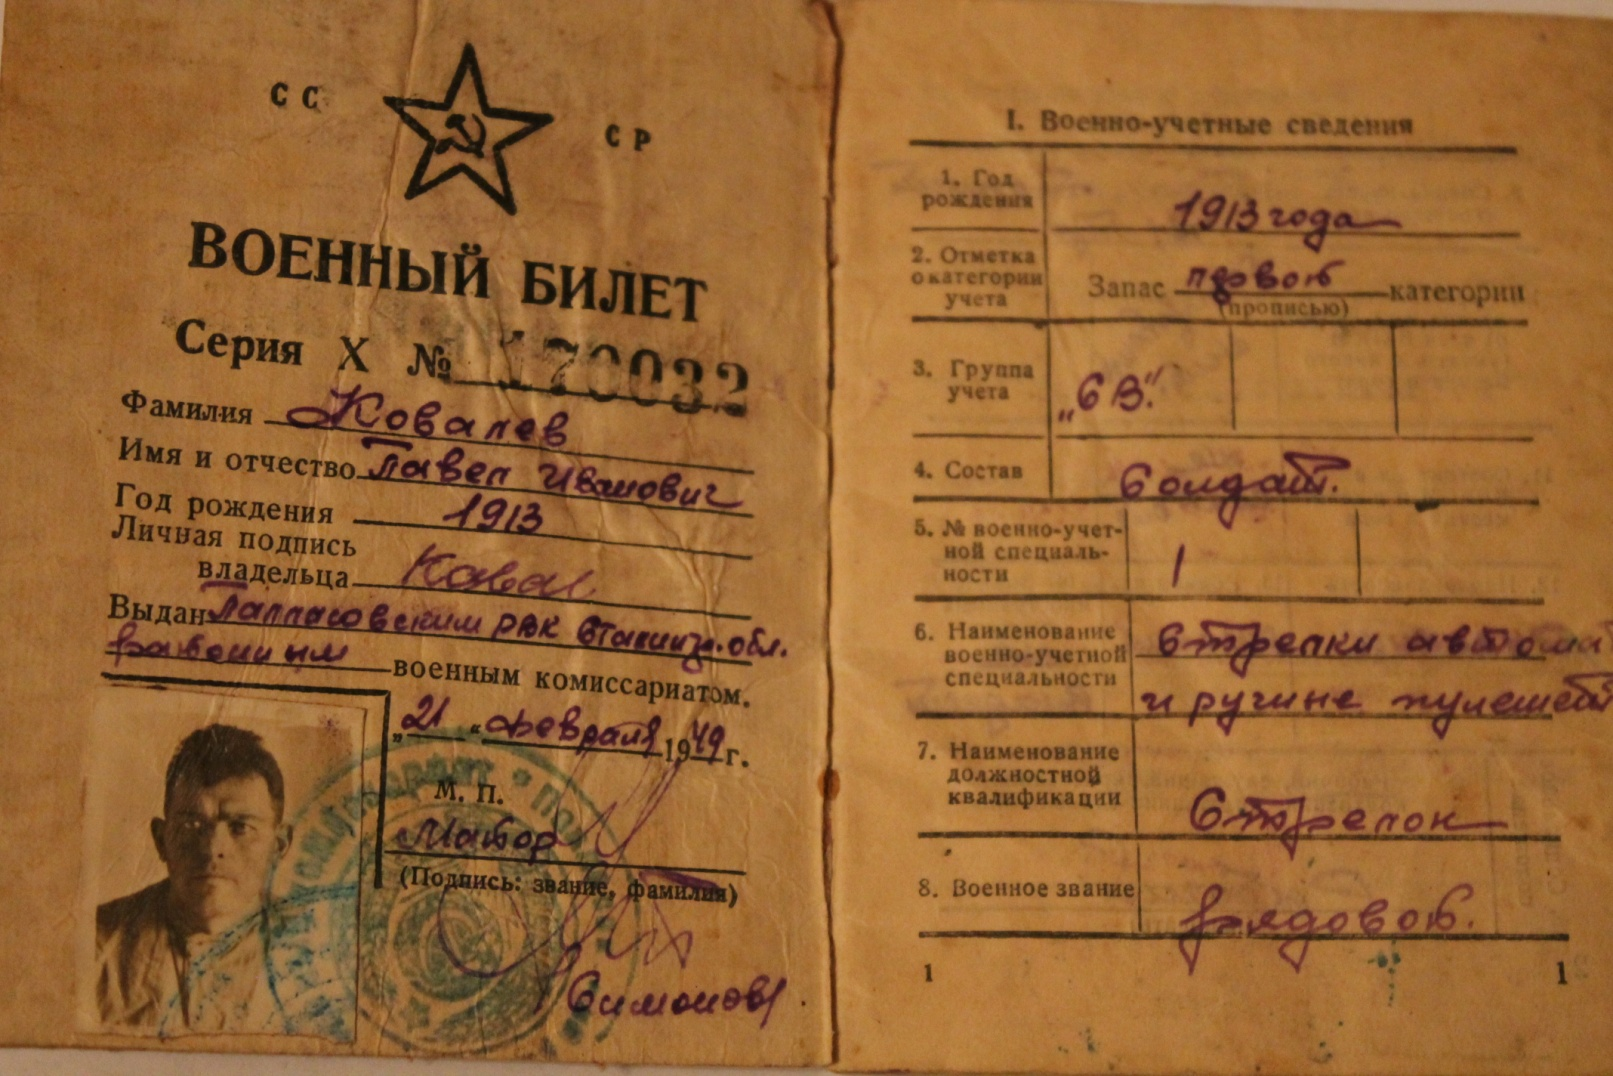 СС СР
ВОЕННЫЙ БИЛЕТ
Серия X № 170032
Фамилия Ковалев
Имя и отчество Павел Иванович
Год рождения 1913
Личная подпись
владельца Ковал
Выдан Палласовским РВК Сталингр. обл.
районным военным комиссариатом.
„21“ февраля 1949 г.
М. П.
Майор
(Подпись: звание, фамилия)
Симонов
I. Военно-учетные сведения
1. Год
рождения 1913 года
2. Отметка
о категории
учета Запас первой категории
(прописью)
3. Группа
учета „6В“
4. Состав Солдат.
5. № военно-учет-
ной специаль-
ности 1
6. Наименование
военно-учетной
специальности Стрелки автома
и ручные пулемет
7. Наименование
должностной
квалификации Стрелок
8. Военное звание рядовой.
1 1